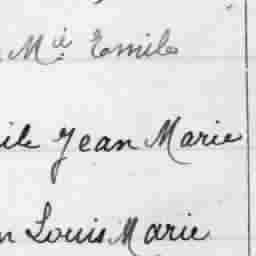 Mie Emile
ile Jean Marie
n Louis Marie